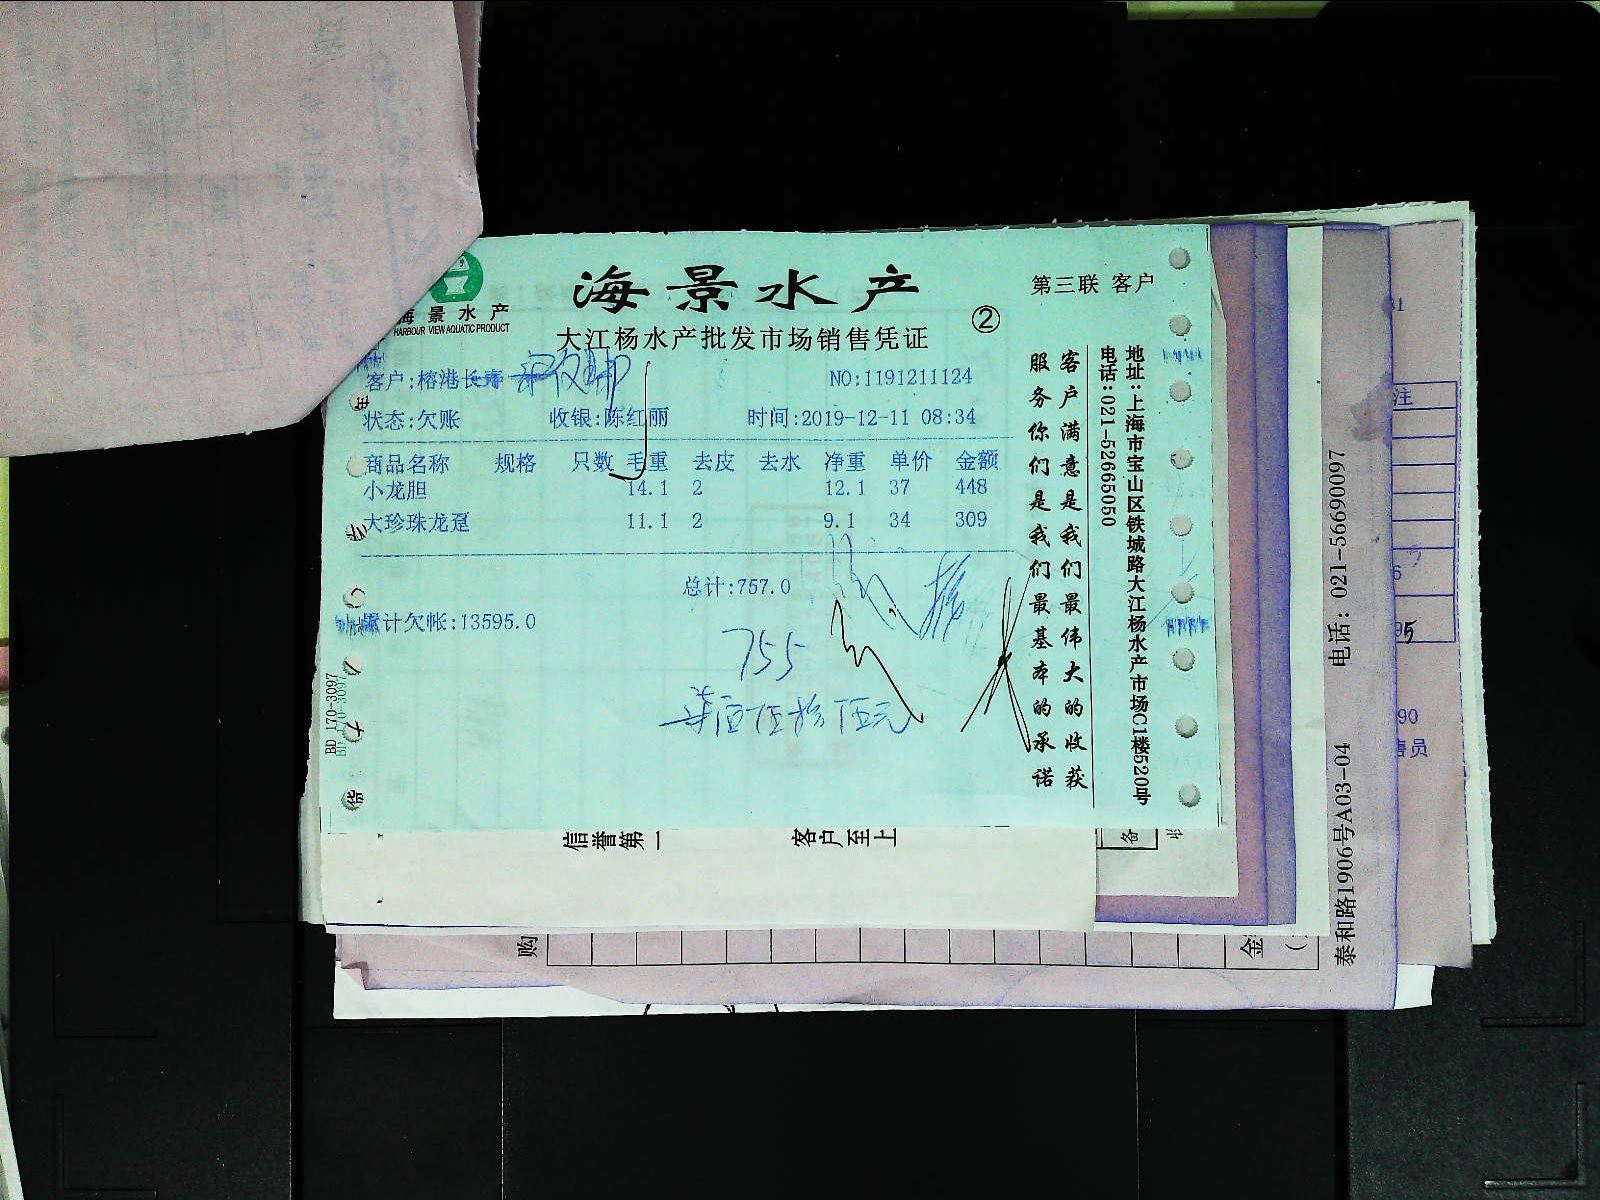 海景水产
HARBOUR VIEW AQUATIC PRODUCT
海景水产
第三联 客户
大江杨水产批发市场销售凭证
②
客户:榕港长寿
NO:1191211124
状态:欠账 收银:陈红丽 时间:2019-12-11 08:34
商品名称 规格 只数 毛重 去皮 去水 净重 单价 金额
小龙胆 14.1 2 12.1 37 448
大珍珠龙趸 11.1 2 9.1 34 309
总计:757.0
累计欠帐:13595.0
755
柒佰伍拾伍元
客户满意是我们最伟大的收获
服务你们是我们最基本的承诺
地址:上海市宝山区铁城路大江杨水产市场C1楼520号
电话:021-52665050
BD 170-3097
信誉第一
客户至上
备
购
金
泰和路1906号A03-04
电话: 021-56690097
注
90
售员